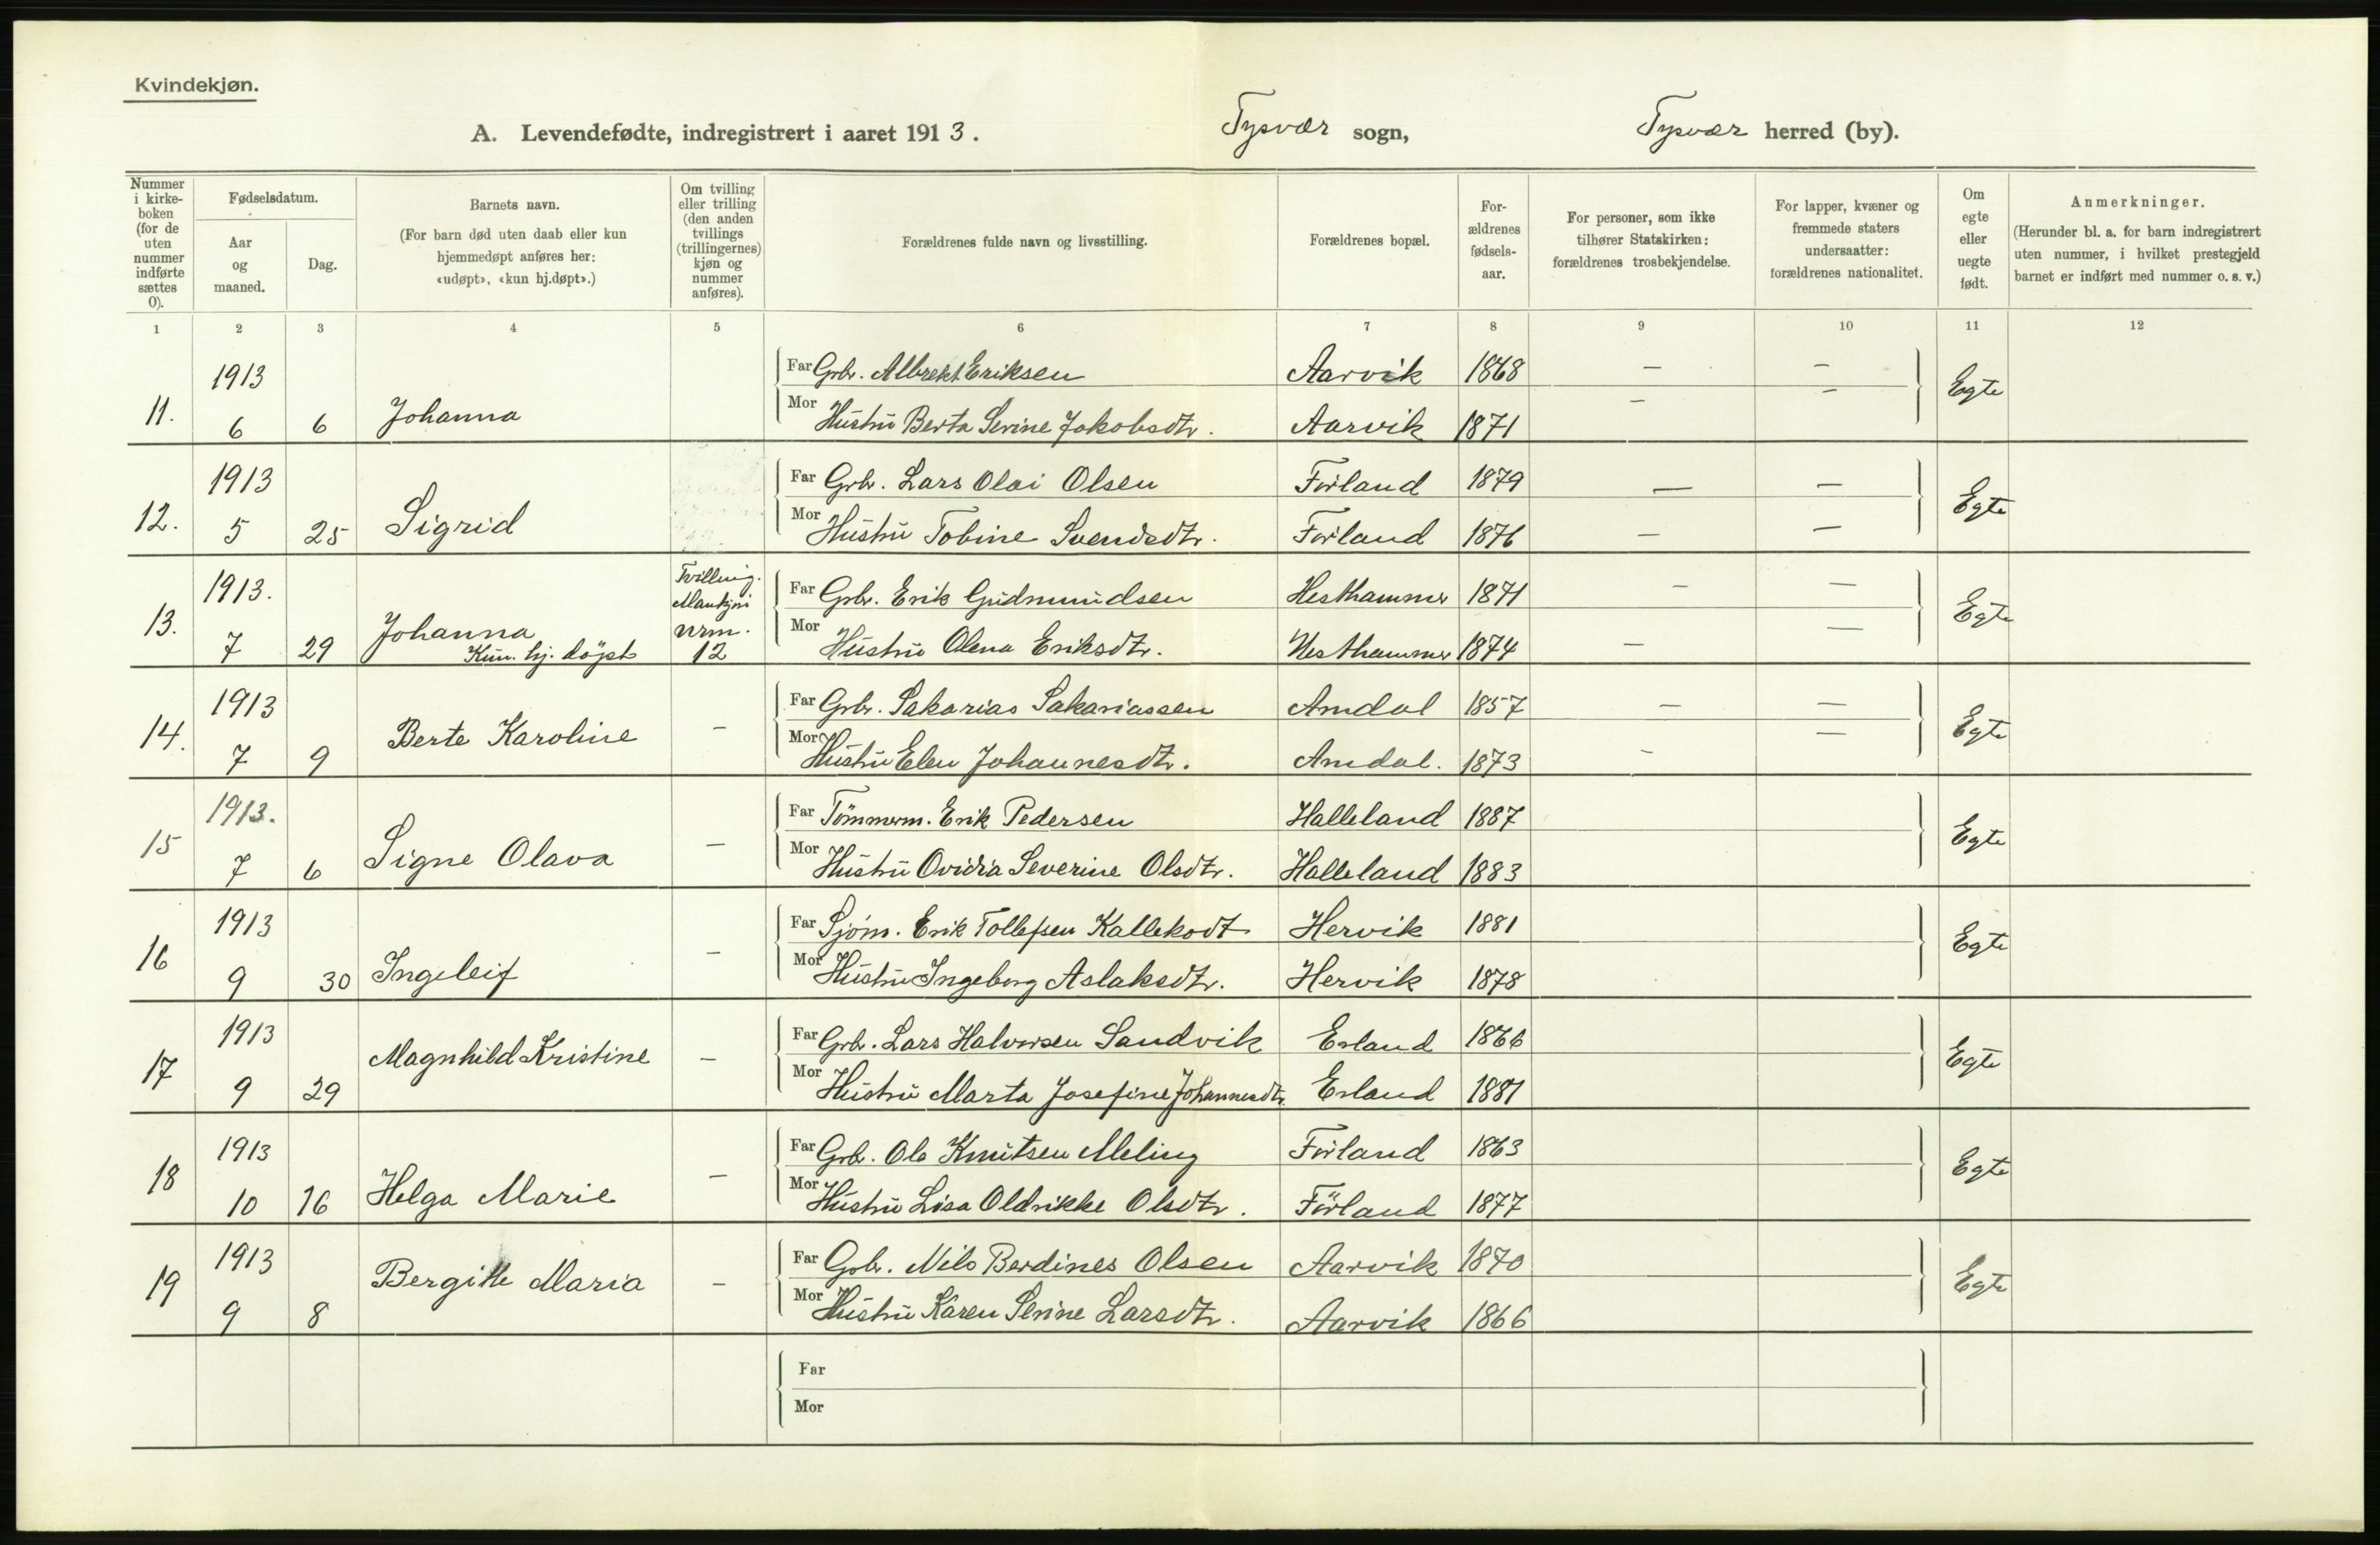 Kvindekjøn.
A. Levendefødte, indregistrert i aaret 1913. Tysvær sogn, Tysvær herred (by).
Nummer i kirke-boken (for de uten nummer indførte sættes 0).
Fødselsdatum.
Aar og maaned.
Dag.
Barnets navn.
(For barn død uten daab eller kun hjemmedøpt anføres her: «udøpt», «kun hj.døpt».)
Om tvilling eller trilling (den anden tvillings (trillingernes) kjøn og nummer anføres).
Forældrenes fulde navn og livsstilling.
Forældrenes bopæl.
For-ældrenes fødsels-aar.
For personer, som ikke tilhører Statskirken: forældrenes trosbekjendelse.
For lapper, kvæner og fremmede staters undersaatter: forældrenes nationalitet.
Om egte eller uegte født.
Anmerkninger.
(Herunder bl. a. for barn indregistrert uten nummer, i hvilket prestegjeld barnet er indført med nummer o. s. v.)
1 2 3 4 5 6 7 8 9 10 11 12
1913 Far Grbr. Albrekt Eriksen Aarvik 1868 — — Egte
11. 6 6 Johanna Mor Hustru Berta Serine Jakobsdtr. Aarvik 1871 — —
1913 Far Grbr. Lars Olai Olsen Førland 1879 — — Egte
12. 5 25 Sigrid Mor Hustru Tobine Svendsdtr. Førland 1876 — —
1913. Tvilling. Mankjøn Far Grbr. Erik Gudmundsen Hesthammer 1871 — — Egte
13. 7 29 Johanna Kun. hj. døpt nrm. 12 Mor Hustru Olena Eriksdtr. Hesthammer 1874 — —
1913 Far Grbr. Sakarias Sakariassen Amdal 1857 — — Egte
14. 7 9 Berte Karoline — Mor Hustru Elen Johannesdtr. Amdal. 1873 — —
1913. Far Tömmerm. Erik Pedersen Halleland 1887 Egte
15 7 6 Signe Olava — Mor Hustru Ovidia Severine Olsdtr. Halleland 1883
1913 Far Sjøm. Erik Tollefsen Kallekodt Hervik 1881 Egte
16 9 30 Ingeleif — Mor Hustru Ingeborg Aslaksdtr. Hervik 1878
1913 Far Grbr. Lars Halvorsen Sandvik Erland 1866 Egte
17 9 29 Magnhild Kristine — Mor Hustru Marta Josefine Johannesdtr. Erland 1881
1913 Far Grb. Ole Knutsen Meling Førland 1863 Egte
18 10 16 Helga Marie — Mor Hustru Lisa Oldrikke Olsdtr. Förland 1877
1913 Far Grbr. Nils Berdines Olsen Aarvik 1870 Egte
19 9 8 Bergitte Maria — Mor Hustru Karen Serine Larsdtr. Aarvik 1866
Far
Mor